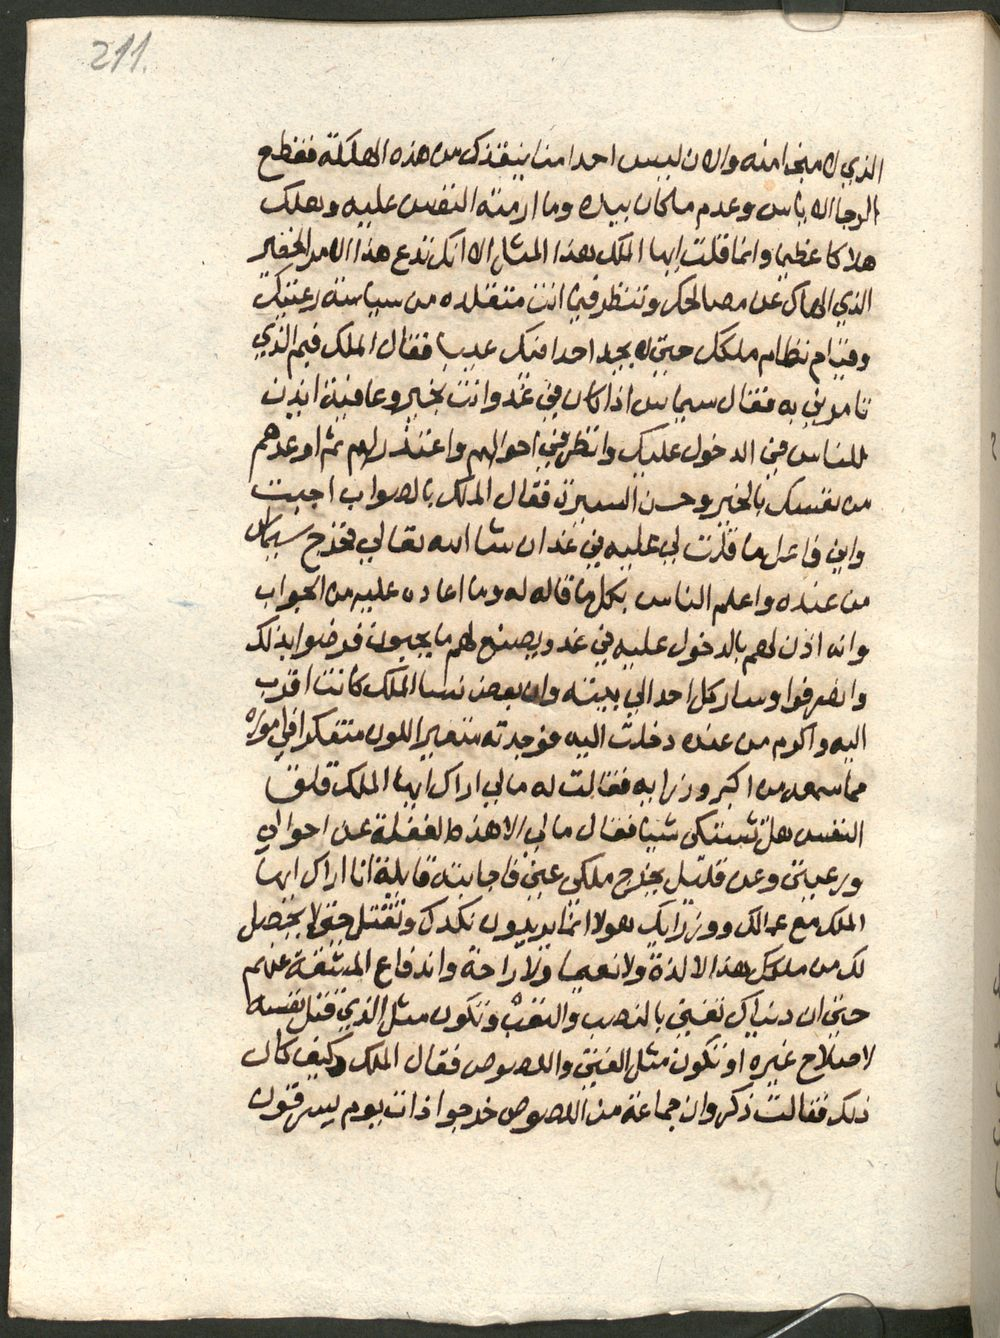 211.
الذي لا منجا منه والان ليس احدا منا ينقذك من هذه الهلكة فقطع
الرجا الاياس وعدم ماكان بيده وما ارمته النفس عليه وهلك
هلاكا عظيما وانما قلت ايها الملك هذا المثل الا انك تدع هذا الامر الحقير
الذي الهاك عن مصالحك وتنظر فيما انت متقلده من سياسة رعيتك
وقيام نظام ملكك حتي لا يجد احدا فيك عيبا فقال الملك فبم الذي
تامرني به فقال سيماس اذا كان في غد وانت بخير وعافية ايذن
للناس في الدخول عليك وانظر في احوالهم واعتذر لهم ثم اوعدهم
من نفسك بالخير وحسن السيرة فقال الملك بالصواب اجبت
واني فاعل ما قلت لي عليه في غد ان شا الله تعالي فخرج سيماس
من عنده واعلم الناس بكل ما قاله له وما اعاده عليه من الجواب
وانه اذن لهم بالدخول عليه في غد ويصنع لهم ما يحبون فرضوا بذلك
وانصرفوا وسار كل احد الي بيته وان بعض نسا الملك كانت اقرب
اليه واكرم من عنده دخلت اليه فوجدته متغير اللون متفكرا في اموره
مما سمعه من اكبر وزرايه فقالت له مالي اراك ايها الملك قلق
النفس هل تشتكي شيا فقال مالي الا هذه الغفلة عن احوالي
ورعيتي وعن قليل يخرج ملكي عني فاجابته قايلة انا اراك ايها
الملك مع عمالك ووزرايك هولا انما يريدون نكدك وتقتل حتي لا يحصل
لك من ملكك هذا لا لذة ولا نعيما ولا راحة واندفاع المشقة عنهم
حتي ان دنياك تفني بالنصب والتعب وتكون مثل الذي قتل نفسه
لاصلاح غيره او تكون مثل الفتي واللصوص فقال الملك وكيف كان
ذلك فقالت ذكروان جماعة من اللصوص خرجوا ذات يوم يسرقون